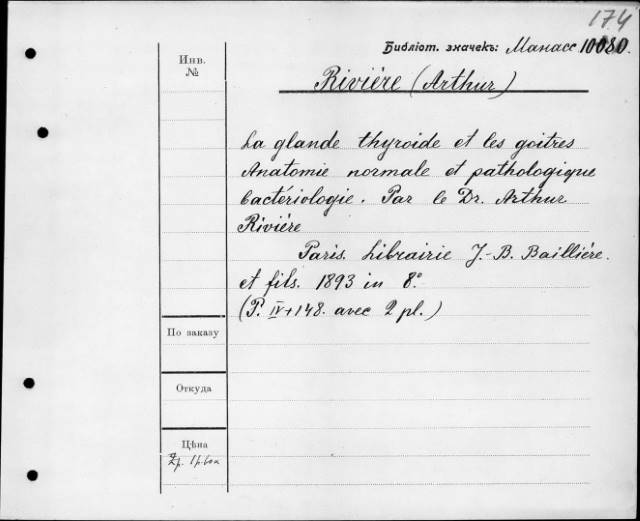 174
Библіот. значекъ: Манасс 10080.
Инв.
№
Riviére (Arthur)
La glande thyroide et les goitres
Anatomie normale et pathologique
bactériologie. Par le Dr. Arthur
Riviére
Paris. Librairie J.-B. Bailliére.
et fils. 1893 in 8°.
(P. IV+148. avec 2 pl.)
По заказу
Откуда
Цѣна